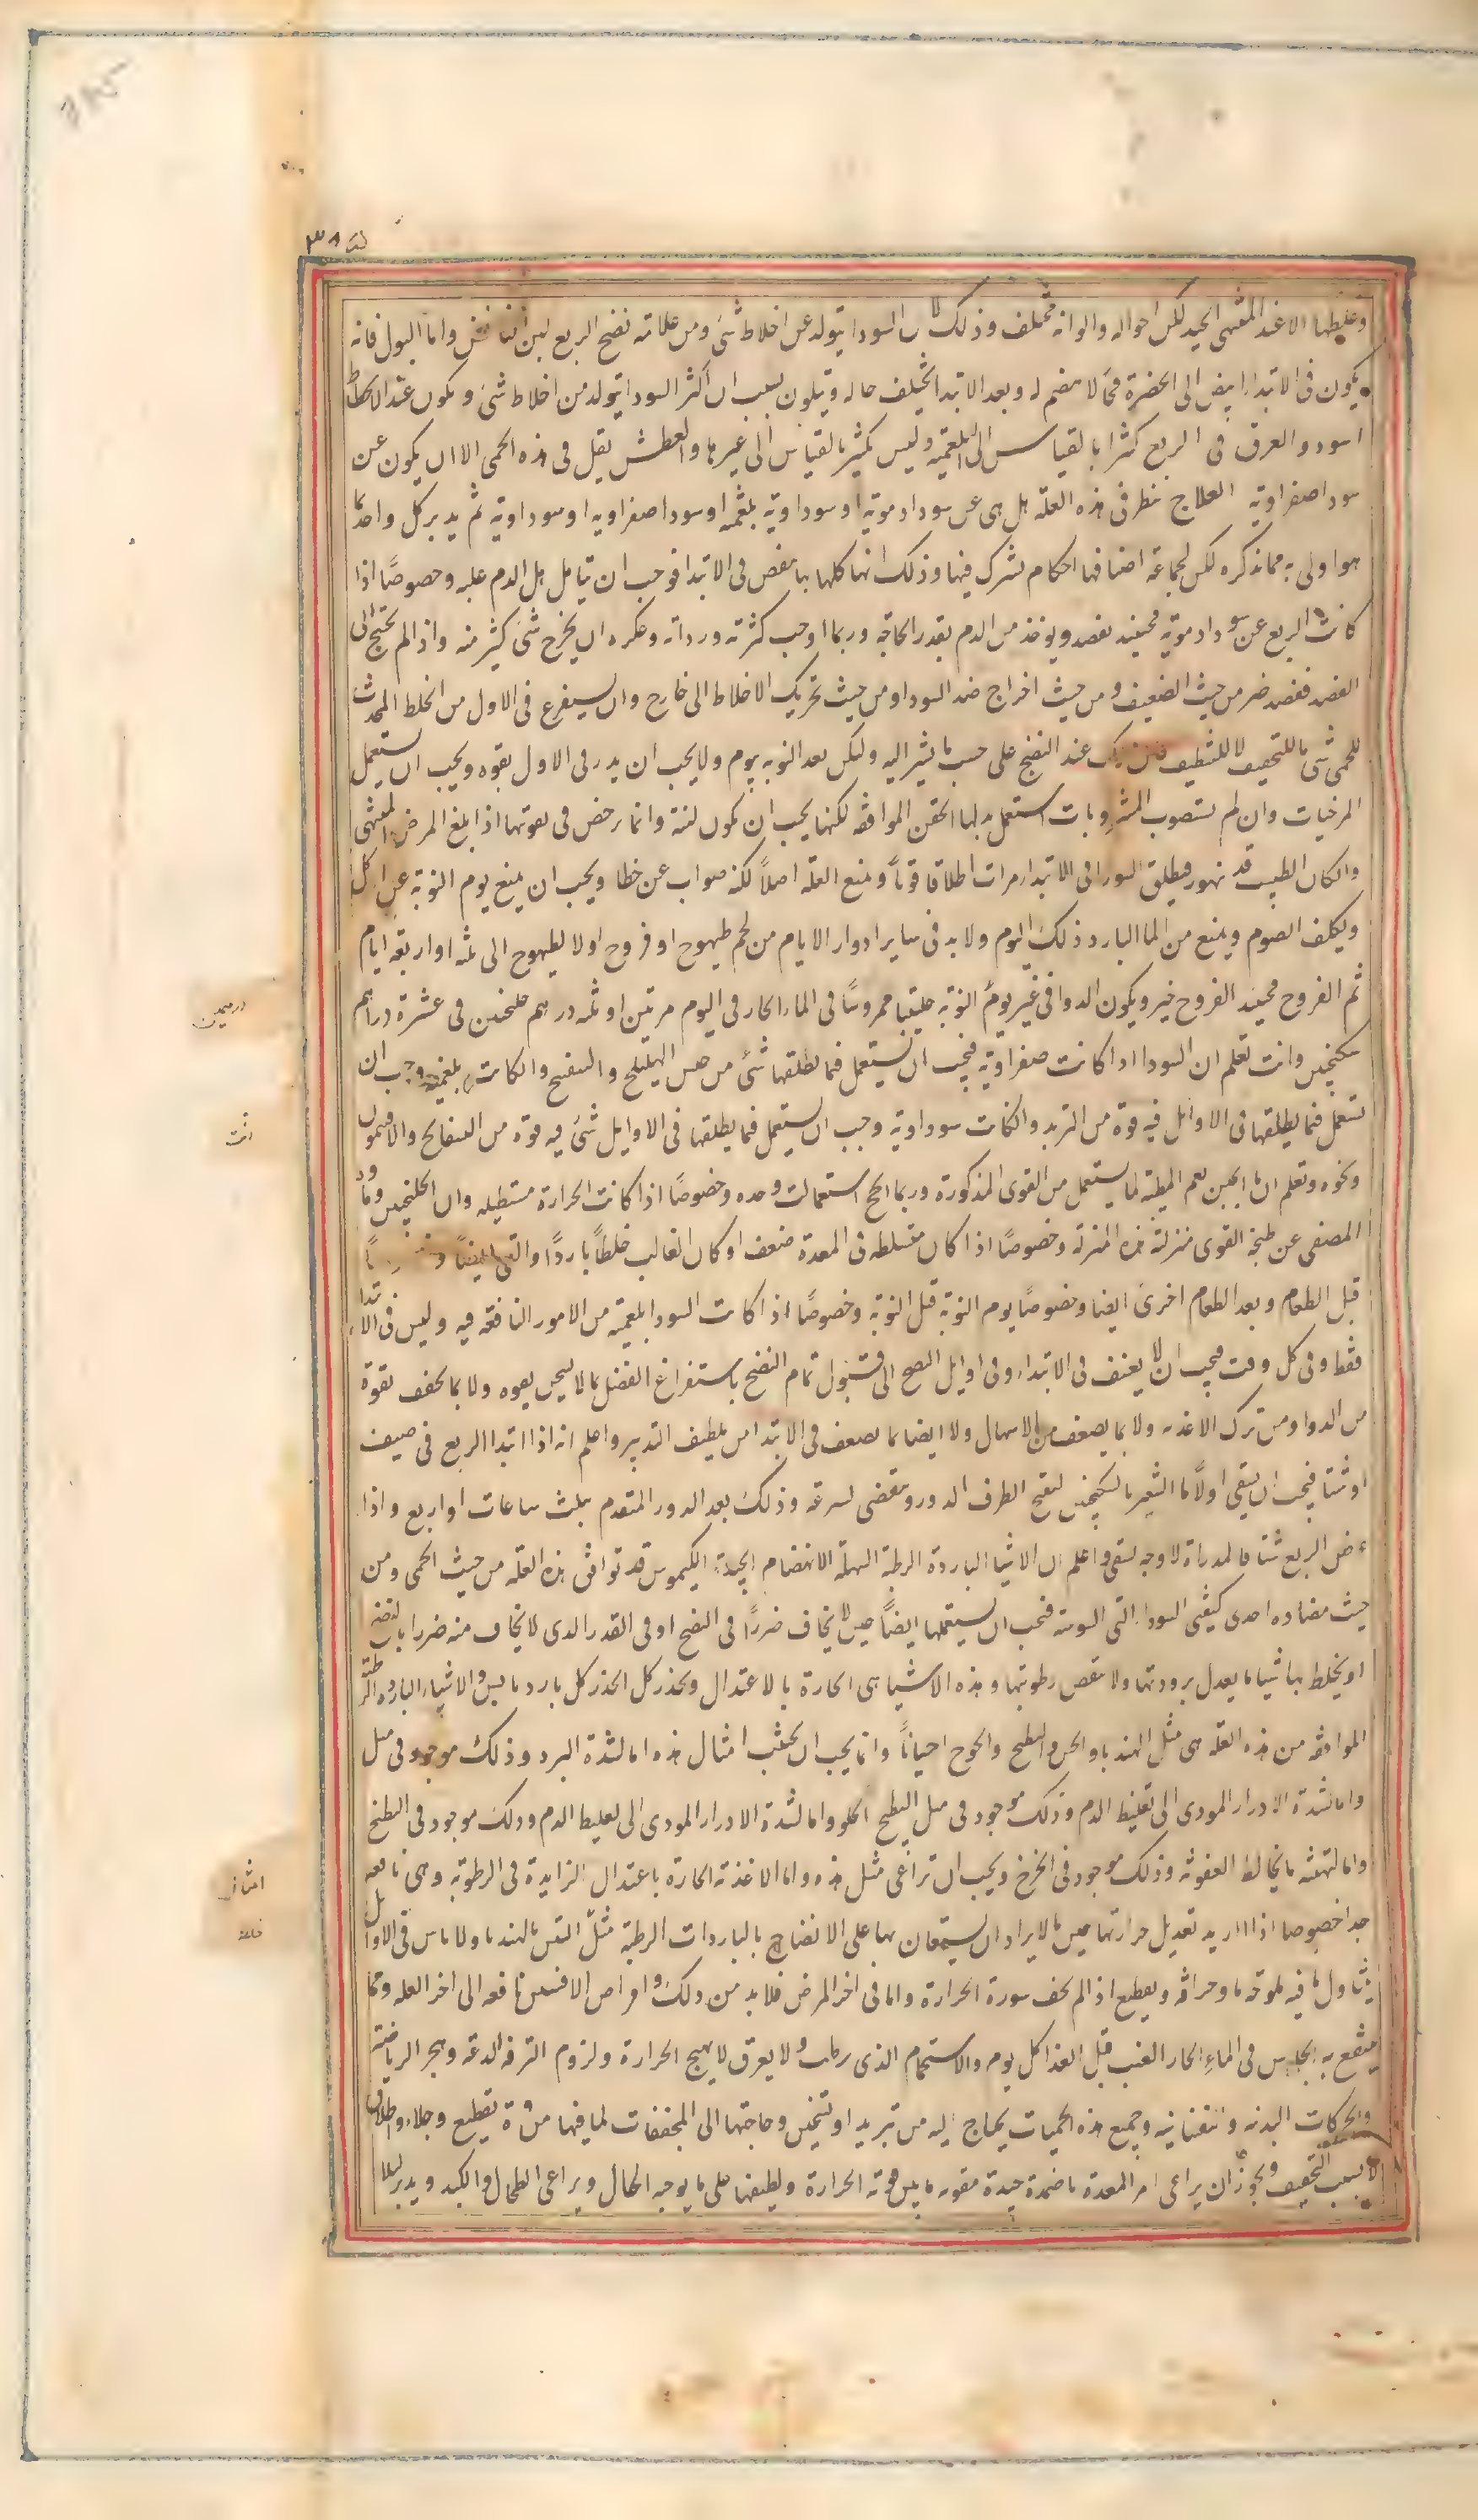 وغلظها الا عند المنتهى الجيد لكن احواله والوانه مختلف وذلك لان السودا يتولد عن اخلاط شتى ومن علاماته نضج الربع لين النافض واما البول فانه
يكون في الابتدا ابيض الى الخضرة فجا لا هضم له وبعد الابتدا يختلف حاله ويتلون بسبب ان اكثر السودا يتولد من اخلاط شتى ويكون عند الانحطاط
اسود والعرق في الربع كثيرا بالقياس الى البلغمية وليس بكثير بالقياس الى غيرها والعطش يقل في هذه الحمى الا ان يكون عن
سودا صفراوية العلاج ننظر في هذه العلة هل هي عن سودا دموية او سوداوية بلغمية او سودا صفراوية او سوداوية ثم يدبر كل واحد بما
هو اولى به مما نذكره لكن لجماعة اصنافها احكام تشترك فيها وذلك انها كلها بها مغص في الابتدا فوجب ان يتامل هل الدم غلبة وخصوصًا اذا
كانت الربع عن سودا دموية فحينئذ تفصد ويوخذ من الدم بقدر الحاجة وربما اوجب كثرته ورداته وعكره ان يخرج شى كثير منه واذا لم يحتج الى
الفصد ففصد ضر من حيث الضعيف ومن حيث اخراج ضد السودا ومن حيث تحريك الاخلاط الى خارج وان يستفرغ في الاول من الخلط المحدث
للحمى شى ما للتخفيف لا للتنظيف فان ذلك عند النضج على حسب ما نشير اليه وليكن بعد النوبة بيوم ولا يجب ان يدر في الاول بقوة ويجب ان يستعمل
المرخيات وان لم تستصوب المشروبات استعمل بدلها الحقن الموافقة لكنها يجب ان تكون لينة وانما رخص في تقويتها اذا بلغ المرض المنتهى
وان كان الطبيب قد تهور فيطلق السودا في الابتدا مرات اطلاقا قويا ويمنع العلة اصلاً لكنه صواب عن خطا ويجب ان يمنع يوم النوبة عن الاكل
ويكلف الصوم ويمنع من الما البارد ذلك اليوم ولا بد في ساير ادوار الايام من لحم طيهوج او فروج اولا لطيهوج الى ثلثه او اربعة ايام
ثم الفروج فحينئذ الفروج خير ويكون الدوا في غير يوم النوبة حلتيتا ممروسًا في الماء الحار في اليوم مرتين او ثلثه دراهم جلنجبين في عشرة دراهم
سكنجبين وانت تعلم ان السودا اذا كانت صفراوية فيجب ان يستعمل فيما يطلقها شى من جنس الهليلج والبنفسج وان كانت بلغمية وجب ان
تستعمل فيما يطلقها في الاوايل فيه قوة من التربد وان كانت سوداوية وجب ان يستعمل فيما يطلقها في الاوايل شى فيه قوة من البسفايج والافتيمون
ونحوه وتعلم ان ما الجبن نعم المطية لما يستعمل من القوى المذكورة وربما انجح استعمالت وحده وخصوصًا اذا كانت الحرارة مستطيلة وان الجلنجبين وماء الورد
المصفى عن طبخة القوى منزلته هذه المنزلة وخصوصًا اذا كان متسلطه في المعدة ضعف او كان الغالب خلطاً باردًا والقى ايضًا
قبل الطعام وبعد الطعام اخرى ايضا وخصوصًا يوم النوبة قبل النوبة وخصوصًا اذا كانت السودا بلغمية من الامور النافعة فيه وليس في الابتدا
فقط وفي كل وقت فيجب ان لا يعنف في الابتداء وفي اوايل النضج الى قبول تمام النضج باستفراغ الفضل بما لا يسخن بقوة ولا بما يجفف بقوة
من الدوا ومن ترك الاغذية ولا بما يضعف من الاسهال ولا ايضا بما يضعف في الابتدا من تلطيف التدبير واعلم انه اذا ابتدا الربع في صيف
او شتا فيجب ان يسقى اولاً ما الشعير بالسكنجبين ليفتح الطرف الدور وينقضى لسرعته وذلك بعد الدور المتقدم بثلث ساعات او اربع واذا
عرض الربع شتا فالمدراة لا وجه لسقى واعلم ان الاشيا الباردة الرطبة السهلة الانهضام الجيدة الكيموس قد توافق هذه العلة من حيث الحمى ومن
حيث مضادة احدى كيفيتى السودا التى اليبوسة فيجب ان يستعملها ايضًا حين لا يخاف ضررًا في النضج او في القدر الذى لا يخاف منه ضررا بالنضج
او يخلط بها شيا ما يعدل برودتها ولا ينقص رطوبتها وهذه الاشيا هى الحارة بالاعتدال ويحذر كل الحذر كل بارد يابس والاشياء الباردة الرطبة
الموافقة من هذه العلة هى مثل الهندبا والخس والبطيخ والخوخ احياناً وانما يجب ان يجتنب امثال هذه اما لشدة البرد وذلك موجود في مثل
واما لشدة الادرار المودى الى تغليظ الدم وذلك موجود في مثل البطيخ الحلو واما لشدة الادرار المودى الى تغليظ الدم وذلك موجود في البطيخ
واما لتهيئه ما يخالط العفونة وذلك موجود في الخوخ ويجب ان تراعى مثل هذه واما الاغذية الحارة باعتدال الزايدة في الرطوبة وهى نافعة
جدا خصوصا اذا اريد تعديل حرارتها حين ما لا يراد ان يستعان بها على الانضاج بالباردات الرطبة مثل التين بالهندبا ولا باس في الاوايل
بتناول ما فيه ملوحة ما وحرافة وتقطيع اذا لم يخف سورة الحرارة واما في اخر المرض فلا بد من ذلك واقراص الافسنتين نافعة الى اخر العلة ومما
ينتفع به الجلوس في الماء الحار العذب قبل الغذا كل يوم والاستحمام الذى يرطب ولا يعرق لا يهيج الحرارة ولزوم الترفه الدعة وهجر الرياضة
والحركات البدنية والنفسانية وجميع هذه الحميات يحتاج اليه من تبريد او تسخين وحاجتها الى المجففات لما فيها من قوة تقطيع وجلاء واطلاق
لا بسبب التجفيف ويجوز ان يراعى امر المعدة باضمدة جيدة مقويه ما بين قوته الحرارة ولطيفها على ما يوجبه الحال ويراعى الطحال والكبد ويدبر ليلا
درهمين
انت